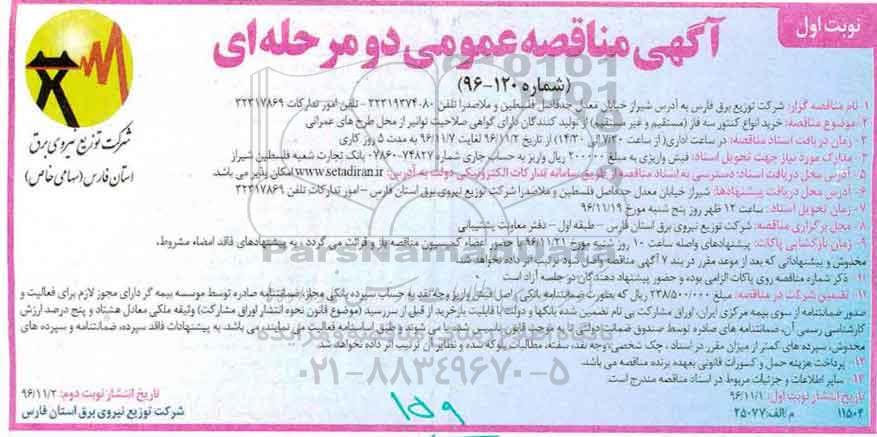 نوبت اول
آگهی مناقصه عمومی دو مرحله‌ای
(شماره ۱۲۰-۹۶)
شرکت توزیع نیروی برق
استان فارس (سهامی خاص)
۱- نام مناقصه گزار: شرکت توزیع برق فارس به آدرس شیراز خیابان معدل حدفاصل فلسطین و ملاصدرا تلفن ۸۰-۳۲۳۱۹۳۷۴ - تلفن امور تدارکات ۳۲۳۱۷۸۶۹
۲- موضوع مناقصه: خرید انواع کنتور سه فاز (مستقیم و غیر مستقیم) از تولید کنندگان دارای گواهی صلاحیت توانیر از محل طرح های عمرانی
۳- زمان دریافت اسناد مناقصه: در ساعات اداری (از ساعت ۷/۳۰ الی ۱۴/۳۰) از تاریخ ۹۶/۱۱/۲ لغایت ۹۶/۱۱/۷ به مدت ۵ روز کاری
۴- مدارک مورد نیاز جهت تحویل اسناد: فیش واریزی به مبلغ ۲۰۰۰۰۰ ریال واریز به حساب جاری شماره ۷۸۶۰۰۷۴۸۲۷ بانک تجارت شعبه فلسطین شیراز
۵- آدرس محل دریافت اسناد: دسترسی به اسناد مناقصه از طریق سامانه تدارکات الکترونیکی دولت به آدرس: www.setadiran.ir امکان پذیر می باشد.
۶- آدرس محل دریافت پیشنهادها: شیراز خیابان معدل حدفاصل فلسطین و ملاصدرا شرکت توزیع نیروی برق استان فارس - امور تدارکات تلفن ۳۲۳۱۷۸۶۹
۷- زمان تحویل اسناد: ساعت ۱۲ ظهر روز پنج شنبه مورخ ۹۶/۱۱/۱۹
۸- محل برگزاری مناقصه: شرکت توزیع نیروی برق استان فارس - طبقه اول - دفتر معاونت پشتیبانی
۹- زمان بازگشایی پاکات: پیشنهادهای واصله ساعت ۱۰ روز شنبه مورخ ۹۶/۱۱/۲۱ با حضور اعضاء کمیسیون مناقصه باز و قرائت می گردد، به پیشنهادهای فاقد امضاء، مشروط،
مخدوش و پیشنهاداتی که بعد از موعد مقرر در بند ۷ آگهی مناقصه واصل شود ترتیب اثر داده نخواهد شد.
۱۰- ذکر شماره مناقصه روی پاکات الزامی بوده و حضور پیشنهاد دهندگان در جلسه آزاد است.
۱۱- تضمین شرکت در مناقصه: مبلغ ۲۳۸/۵۰۰/۰۰۰ ریال که بصورت ضمانتنامه بانکی، اصل فیش واریز وجه نقد به حساب سپرده بانکی مجاز، ضمانتنامه صادره توسط موسسه بیمه گر دارای مجوز لازم برای فعالیت و
صدور ضمانتنامه از سوی بیمه مرکزی ایران، اوراق مشارکت بی نام تضمین شده بانکها و دولت با قابلیت بازخرید از قبل از سررسید (موضوع قانون نحوه انتشار اوراق مشارکت) وثیقه ملکی معادل هشتاد و پنج درصد ارزش
کارشناسی رسمی آن، ضمانتنامه های صادره توسط صندوق ضمانت دولتی که به موجب قانون تاسیس شده یا می شوند و طبق اساسنامه فعالیت می نمایند، می باشد. به پیشنهادات فاقد سپرده، ضمانتنامه و سپرده های
مخدوش، سپرده های کمتر از میزان مقرر در اسناد، چک شخصی، وجه نقد، سفته، مطالبات بلوکه شده و نظایر آن ترتیب اثر داده نخواهد شد.
۱۲- پرداخت هزینه حمل و کسورات قانونی بعهده برنده مناقصه می باشد.
۱۳- سایر اطلاعات و جزئیات مربوط در اسناد مناقصه مندرج است.
تاریخ انتشار نوبت اول: ۹۶/۱۱/۱
تاریخ انتشار نوبت دوم: ۹۶/۱۱/۲
۱۱۵۰۴ م/الف: ۲۵۰۷۷
شرکت توزیع نیروی برق استان فارس
ParsNamadData
۰۲۱-۸۸۳۴۹۶۷۰-۵